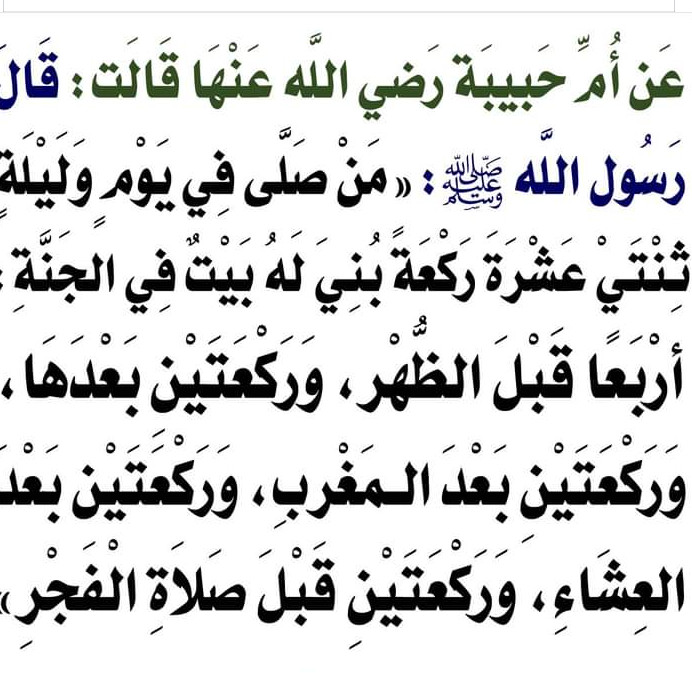 عَن أُمِّ حَبِيبَة رَضي اللَّه عَنْهَا قَالَت : قَال
رَسُول اللَّه ﷺ : « مَنْ صَلَّى فِي يَوْمٍ وَلَيْلَةٍ
ثِنْتَيْ عَشْرَةَ رَكْعَةً بُنِيَ لَهُ بَيْتٌ فِي الجَنَّةِ :
أرْبَعًا قَبْلَ الظُّهْرِ، وَرَكْعَتَيْنِ بَعْدَهَا ،
وَرَكْعَتَيْنِ بَعْدَ المَغْرِبِ، وَرَكْعَتَيْنِ بَعْدَ
العِشَاءِ، وَرَكْعَتَيْنِ قَبْلَ صَلاَةِ الْفَجْرِ»